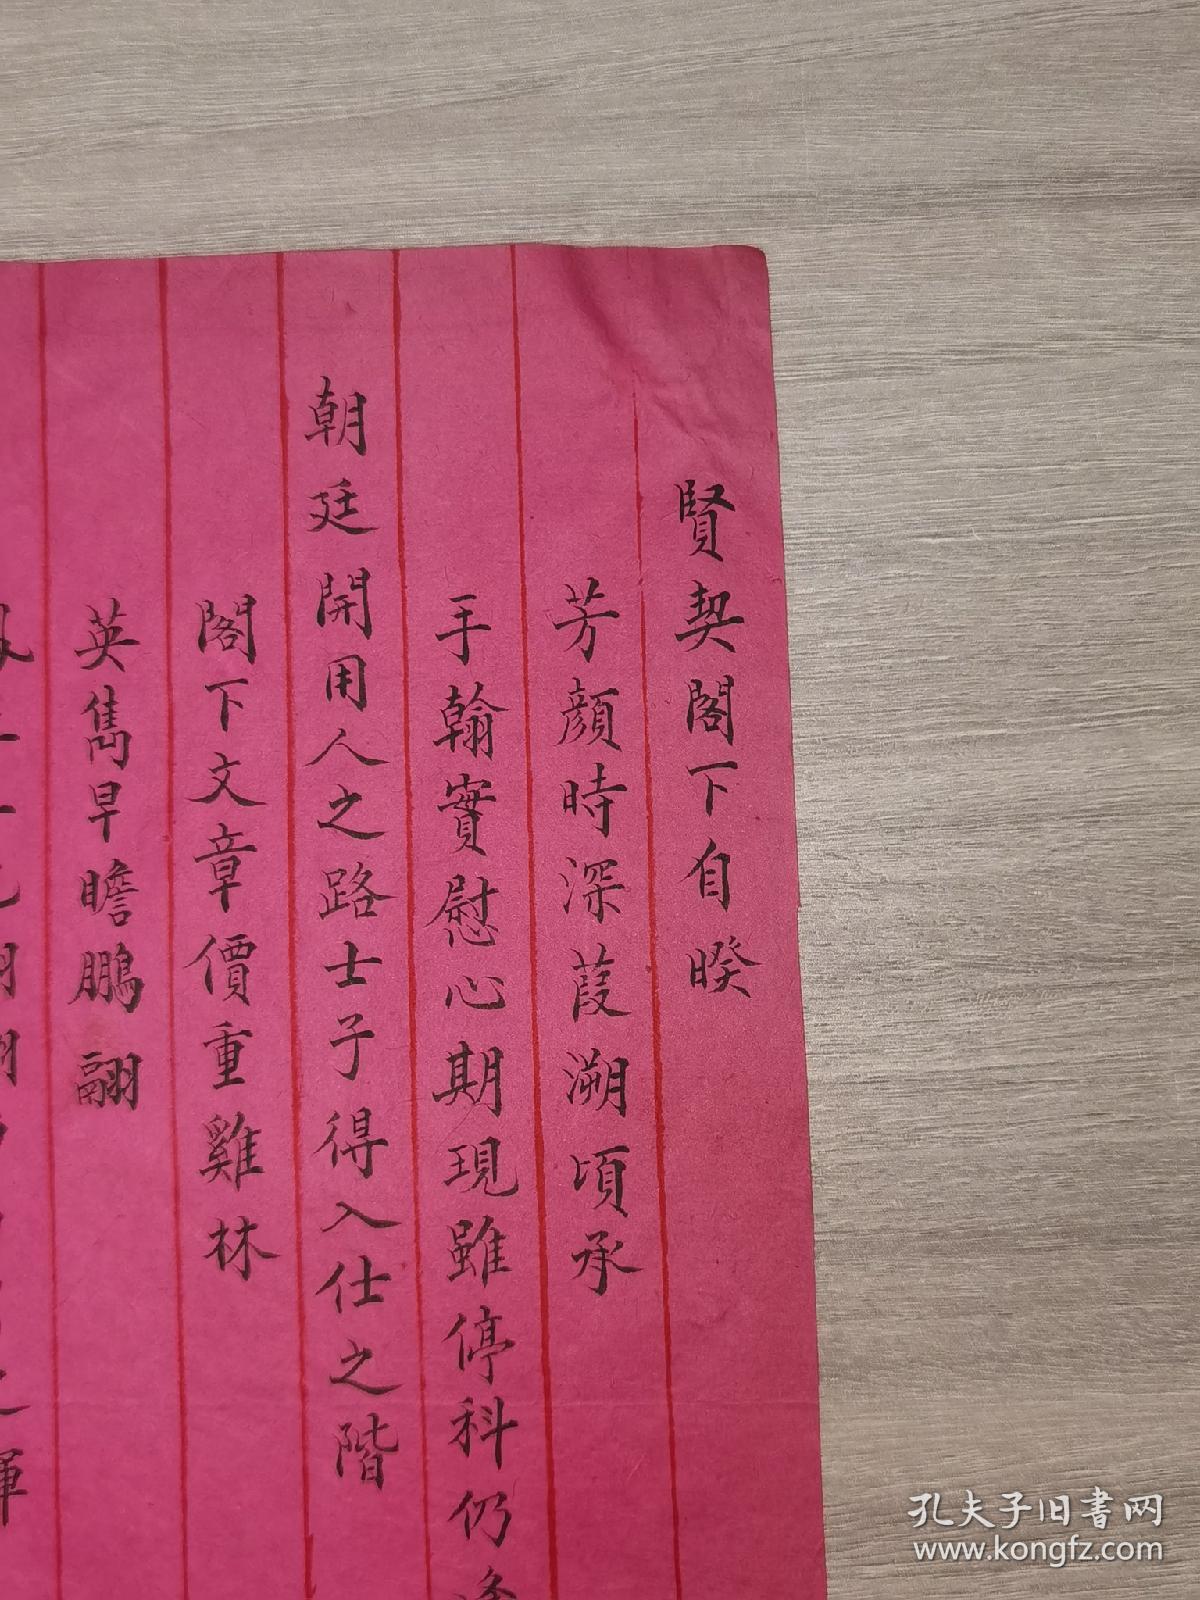 賢契閣下自暌
芳顔時深葭溯頃承
手翰實慰心期現雖停科仍逢
朝廷開用人之路士子得入仕之階
閣下文章價重雞林
英雋早瞻鵬翮
孔夫子旧書网
www.kongfz.com